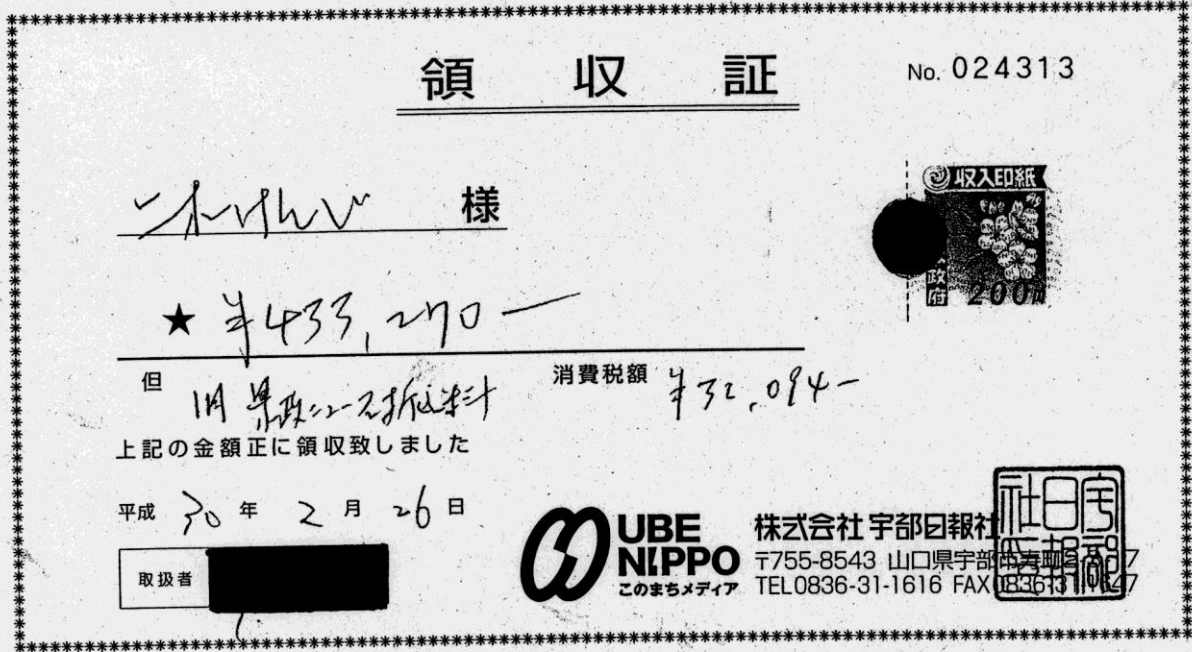 領収証
No. 024313
収入印紙
政府
200円
二木けんじ 様
★ ¥433,270-
但 1月 県政ニュース折込料
消費税額 ¥32,094-
上記の金額正に領収致しました
平成 30 年 2 月 26 日
取扱者
UBE NIPPO
このまちメディア
株式会社 宇部日報社
〒755-8543 山口県宇部市寿町
TEL0836-31-1616 FAX0836-31